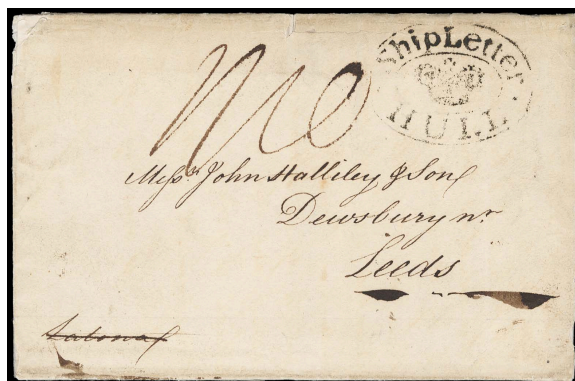 Ship Letter
HULL
Mess.rs John Halliley & Sons
Dewsbury nr
Leeds